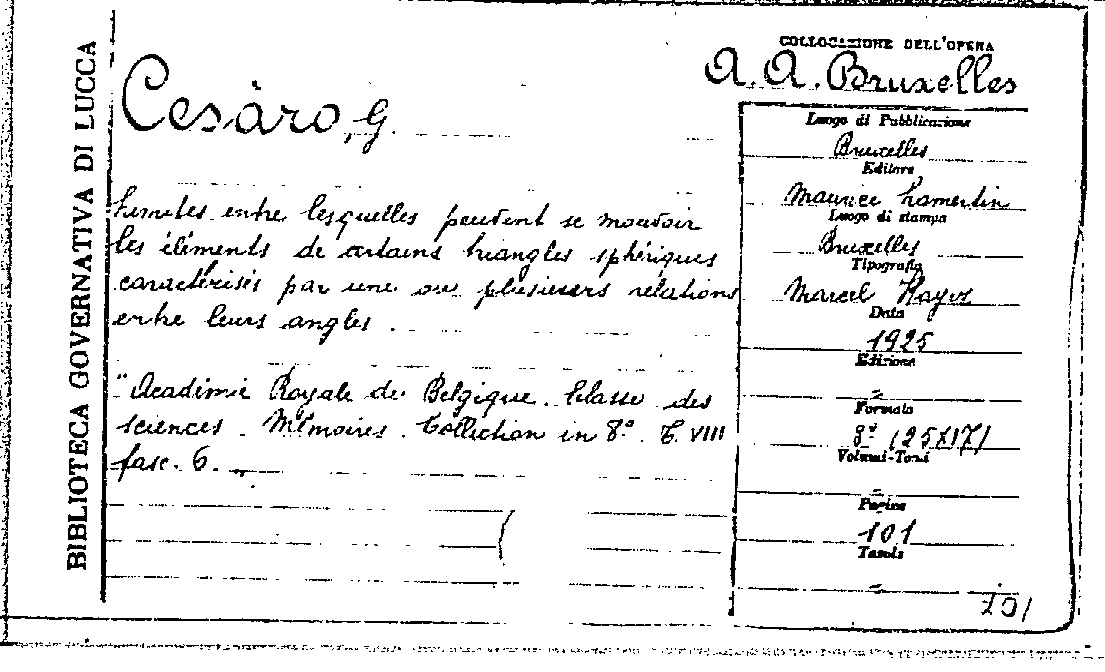 BIBLIOTECA GOVERNATIVA DI LUCCA
COLLOCAZIONE DELL'OPERA
A. A. Bruxelles
Cesàro, G.
Limites entre lesquelles peuvent se mouvoir
les éléments de certains triangles sphériques
caractérisés par une ou plusieurs rélations
entre leurs angles.
"Académie Royale de Belgique. Classe des
sciences. Mémoires. Collection in 8.° T. VIII
fasc. 6.
Luogo di Pubblicazione
Bruxelles
Editore
Maurice Lamertin
Luogo di stampa
Bruxelles
Tipografia
Marcel Hayez
Data
1925
Edizione
=
Formato
8° (25X17)
Volumi-Tomi
=
Pagine
101
Tavole
=